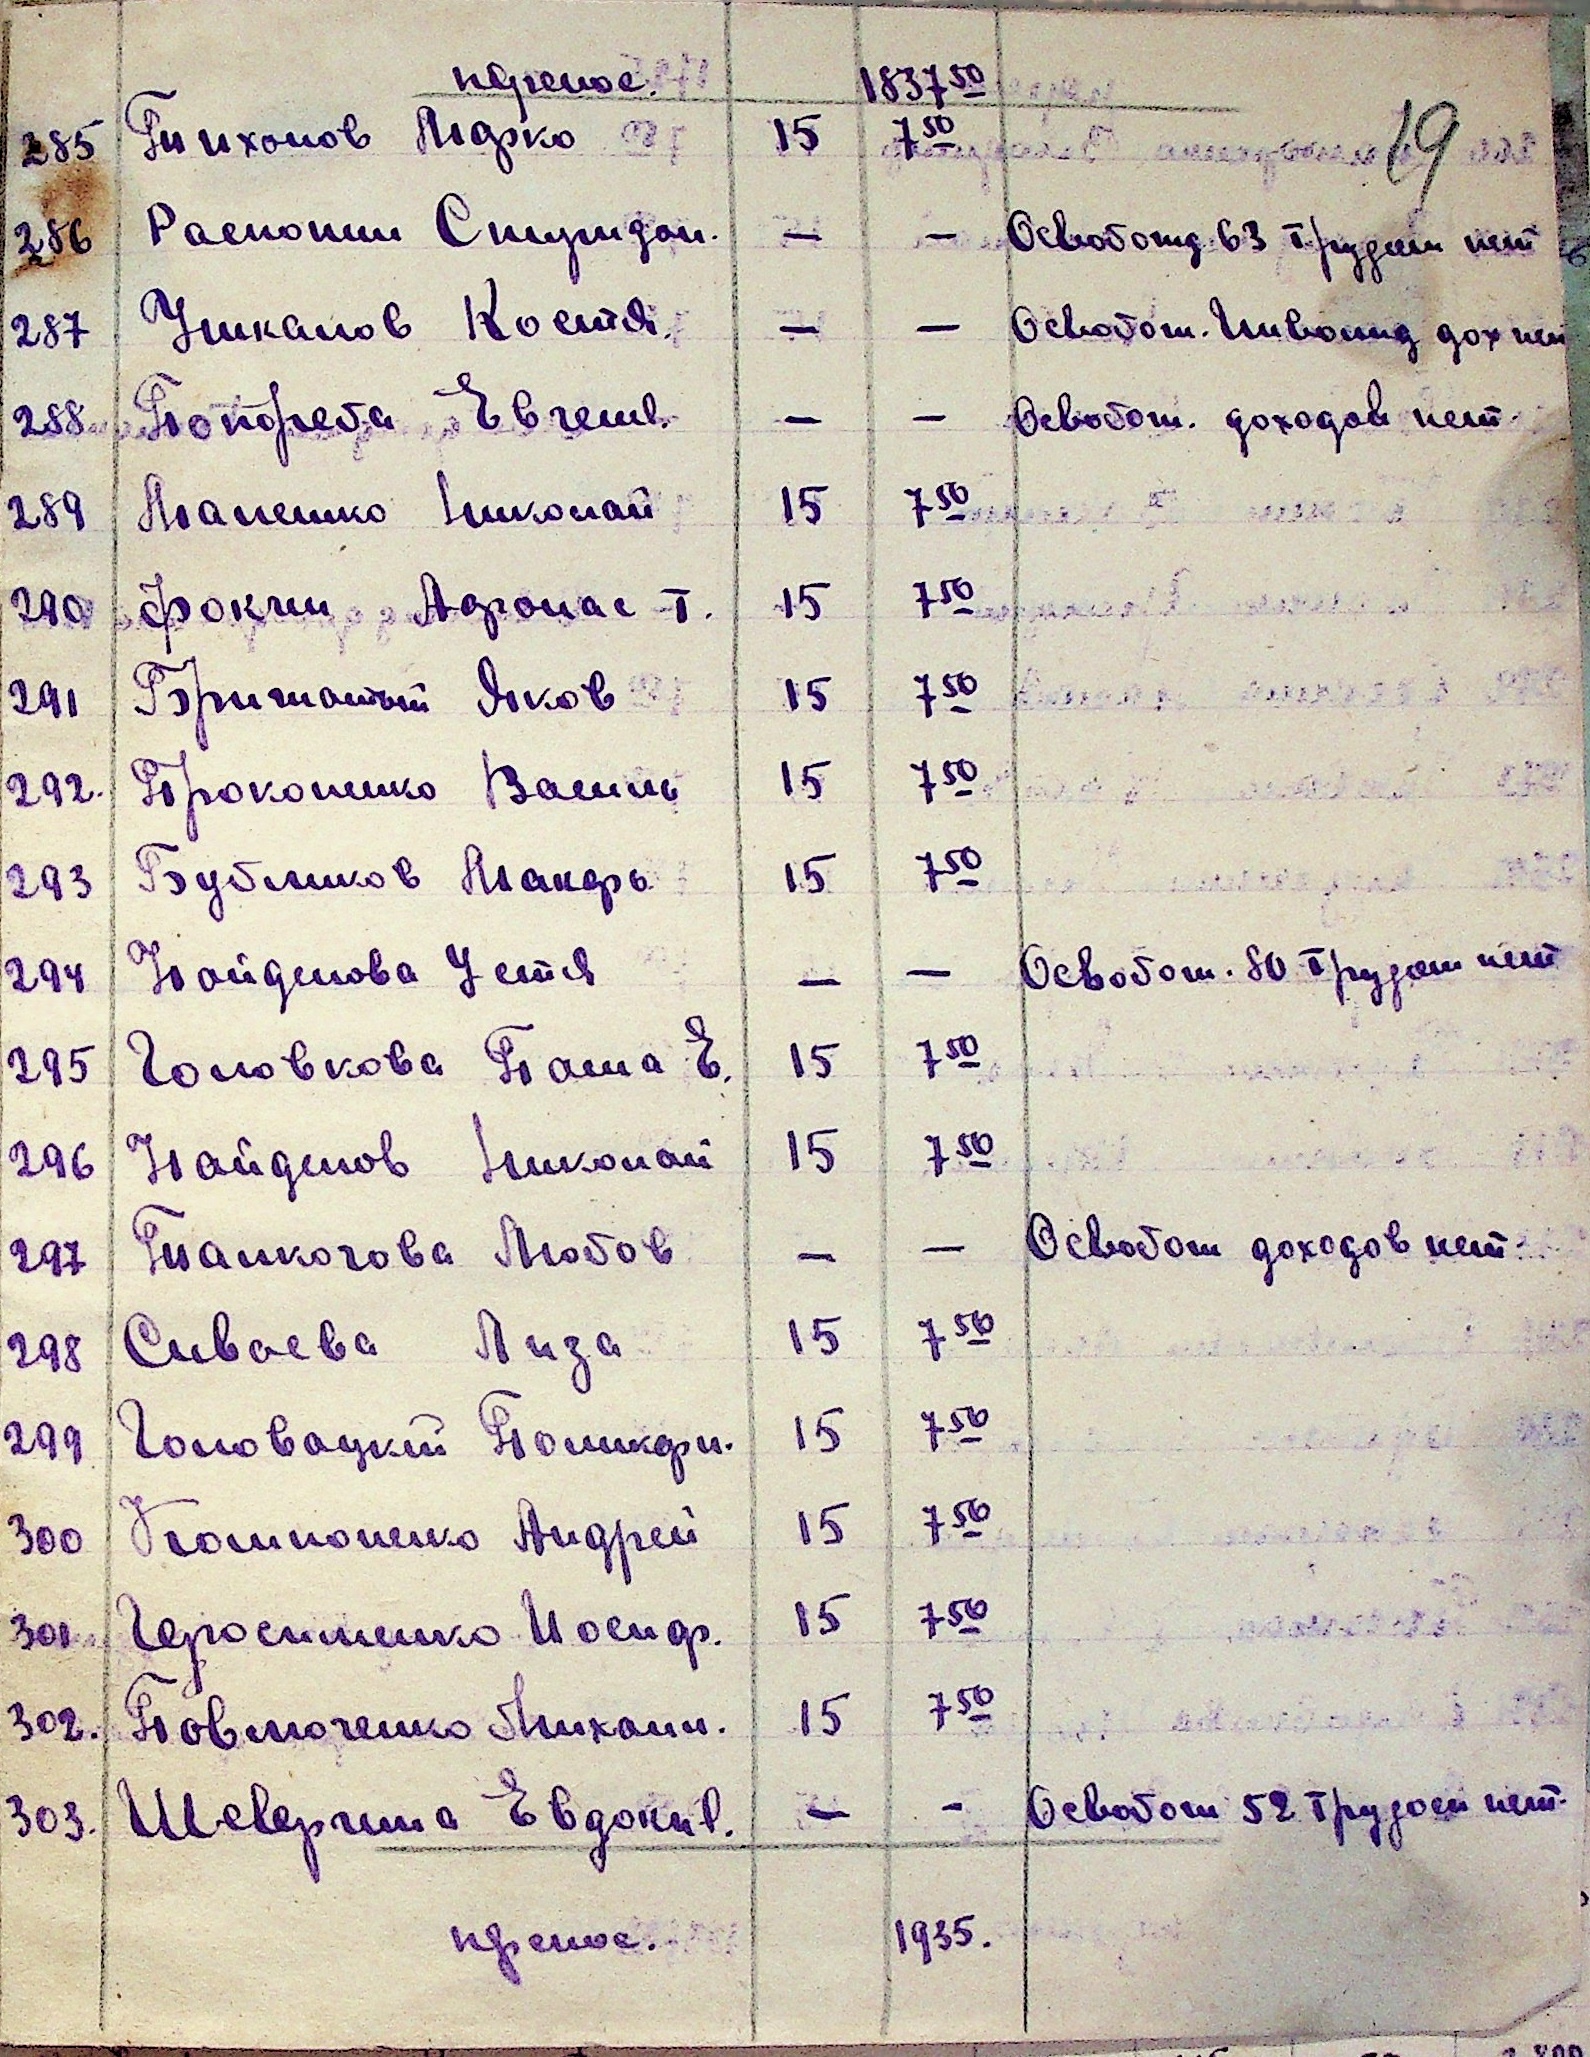 перенос. 1837 50
19
285 Тихонов Марко 15 7 50
286 Распопин Спиридон. — — Освобожд 63 трудосп нет
287 Ушканов Костя. — — Освобож. Инвалид дох нет
288 Евгени. — — Освобож. доходов нет.
289 Маненко Николай 15 7 50
290 Фокин Афонас Т. 15 7 50
291 Яков 15 7 50
292. Прокопенко Василь 15 7 50
293 Бубликов Макарь 15 7 50
294 Найденова Устя — — Освобож. 80 трудосп нет
295 Головкова Паша Е. 15 7 50
296 Найденов Николай 15 7 50
297 Любов — — Освобож доходов нет.
298 Сиваева Лиза 15 7 50
299 Головацкий Поликари. 15 7 50
300 Андрей 15 7 50
301 Геросименко Иосиф. 15 7 50
302. Повлюченко Михаил. 15 7 50
303. Шевергина Евдоки. — - Освобож 52 трудосп нет.
перенос. 1935.